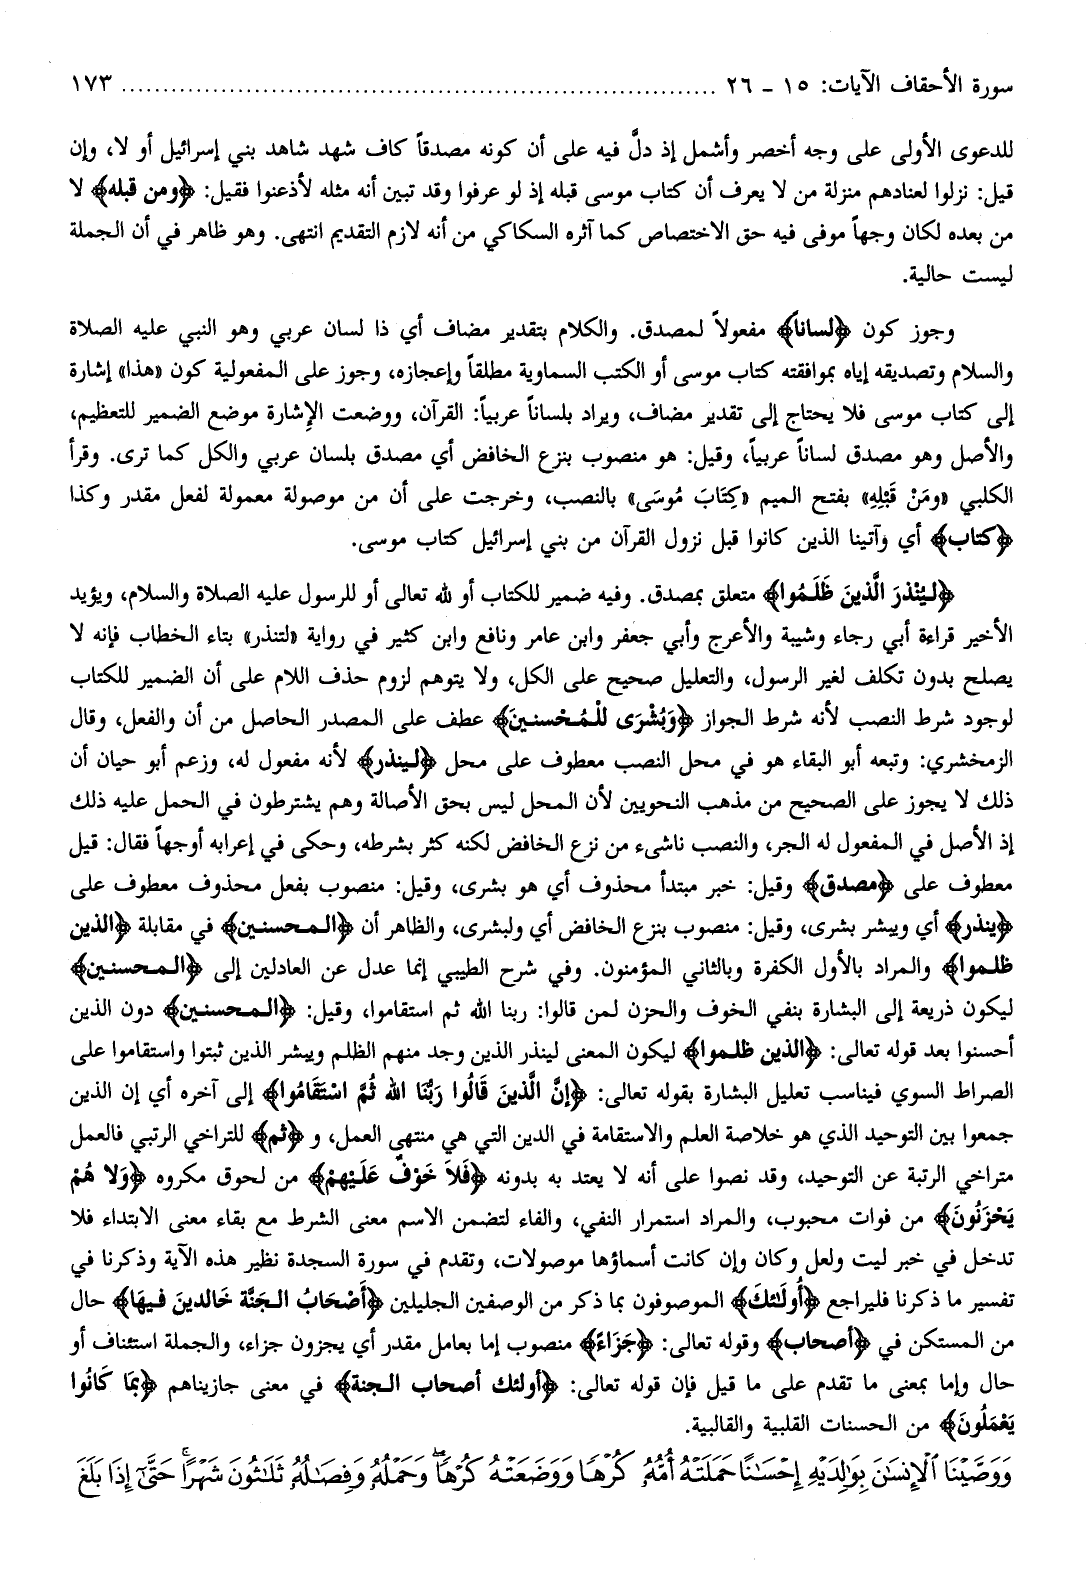 سورة الأحقاف الآيات: ١٥ ـ ٢٦ .......................................................................... ١٧٣
للدعوى الأولى على وجه أخصر وأشمل إذ دلَّ فيه على أن كونه مصدقاً كاف شهد شاهد بني إسرائيل أو لا، وإن
قيل: نزلوا لعنادهم منزلة من لا يعرف أن كتاب موسى قبله إذ لو عرفوا وقد تبين أنه مثله لأذعنوا فقيل: ﴿ومن قبله﴾ لا
من بعده لكان وجهاً موفى فيه حق الاختصاص كما آثره السكاكي من أنه لازم التقديم انتهى. وهو ظاهر في أن الجملة
ليست حالية.
وجوز كون ﴿لساناً﴾ مفعولاً لمصدق. والكلام بتقدير مضاف أي ذا لسان عربي وهو النبي عليه الصلاة
والسلام وتصديقه إياه بموافقته كتاب موسى أو الكتب السماوية مطلقاً وإعجازه، وجوز على المفعولية كون «هذا» إشارة
إلى كتاب موسى فلا يحتاج إلى تقدير مضاف، ويراد بلساناً عربياً: القرآن، ووضعت الإشارة موضع الضمير للتعظيم،
والأصل وهو مصدق لساناً عربياً، وقيل: هو منصوب بنزع الخافض أي مصدق بلسان عربي والكل كما ترى. وقرأ
الكلبي «ومَنْ قَبْلِهِ» بفتح الميم «كِتَابَ مُوسَى» بالنصب، وخرجت على أن من موصولة معمولة لفعل مقدر وكذا
﴿كتاب﴾ أي وآتينا الذين كانوا قبل نزول القرآن من بني إسرائيل كتاب موسى.
﴿لِيُنْذِرَ الَّذِينَ ظَلَمُوا﴾ متعلق بمصدق. وفيه ضمير للكتاب أو لله تعالى أو للرسول عليه الصلاة والسلام، ويؤيد
الأخير قراءة أبي رجاء وشيبة والأعرج وأبي جعفر وابن عامر ونافع وابن كثير في رواية «لتنذر» بتاء الخطاب فإنه لا
يصلح بدون تكلف لغير الرسول، والتعليل صحيح على الكل، ولا يتوهم لزوم حذف اللام على أن الضمير للكتاب
لوجود شرط النصب لأنه شرط الجواز ﴿وَبُشْرَى لِلْمُحْسِنِينَ﴾ عطف على المصدر الحاصل من أن والفعل، وقال
الزمخشري: وتبعه أبو البقاء هو في محل النصب معطوف على محل ﴿لينذر﴾ لأنه مفعول له، وزعم أبو حيان أن
ذلك لا يجوز على الصحيح من مذهب النحويين لأن المحل ليس بحق الأصالة وهم يشترطون في الحمل عليه ذلك
إذ الأصل في المفعول له الجر، والنصب ناشىء من نزع الخافض لكنه كثر بشرطه، وحكى في إعرابه أوجهاً فقال: قيل
معطوف على ﴿مصدق﴾ وقيل: خبر مبتدأ محذوف أي هو بشرى، وقيل: منصوب بفعل محذوف معطوف على
﴿ينذر﴾ أي ويبشر بشرى، وقيل: منصوب بنزع الخافض أي ولبشرى، والظاهر أن ﴿المحسنين﴾ في مقابلة ﴿الذين
ظلموا﴾ والمراد بالأول الكفرة وبالثاني المؤمنون. وفي شرح الطيبي إنما عدل عن العادلين إلى ﴿المحسنين﴾
ليكون ذريعة إلى البشارة بنفي الخوف والحزن لمن قالوا: ربنا الله ثم استقاموا، وقيل: ﴿المحسنين﴾ دون الذين
أحسنوا بعد قوله تعالى: ﴿الذين ظلموا﴾ ليكون المعنى لينذر الذين وجد منهم الظلم ويبشر الذين ثبتوا واستقاموا على
الصراط السوي فيناسب تعليل البشارة بقوله تعالى: ﴿إنَّ الَّذِينَ قَالُوا رَبُّنَا الله ثُمَّ اسْتَقَامُوا﴾ إلى آخره أي إن الذين
جمعوا بين التوحيد الذي هو خلاصة العلم والاستقامة في الدين التي هي منتهى العمل، و ﴿ثم﴾ للتراخي الرتبي فالعمل
متراخي الرتبة عن التوحيد، وقد نصوا على أنه لا يعتد به بدونه ﴿فَلاَ خَوْفٌ عَلَيْهِمْ﴾ من لحوق مكروه ﴿وَلا هُمْ
يَحْزَنُونَ﴾ من فوات محبوب، والمراد استمرار النفي، والفاء لتضمن الاسم معنى الشرط مع بقاء معنى الابتداء فلا
تدخل في خبر ليت ولعل وكان وإن كانت أسماؤها موصولات، وتقدم في سورة السجدة نظير هذه الآية وذكرنا في
تفسير ما ذكرنا فليراجع ﴿أُولَئكَ﴾ الموصوفون بما ذكر من الوصفين الجليلين ﴿أَصْحَابُ الجَنَّة خَالدينَ فيهَا﴾ حال
من المستكن في ﴿أصحاب﴾ وقوله تعالى: ﴿جَزَاءً﴾ منصوب إما بعامل مقدر أي يجزون جزاء، والجملة استئناف أو
حال وإما بمعنى ما تقدم على ما قيل فإن قوله تعالى: ﴿أولئك أصحاب الجنة﴾ في معنى جازيناهم ﴿بِمَا كَانُوا
يَعْمَلُونَ﴾ من الحسنات القلبية والقالبية.
وَوَصَّيْنَا ٱلْإِنسَٰنَ بِوَٰلِدَيْهِ إِحْسَٰنًا حَمَلَتْهُ أُمُّهُۥ كُرْهًا وَوَضَعَتْهُ كُرْهًا ۖ وَحَمْلُهُۥ وَفِصَٰلُهُۥ ثَلَٰثُونَ شَهْرًا ۚ حَتَّىٰٓ إِذَا بَلَغَ